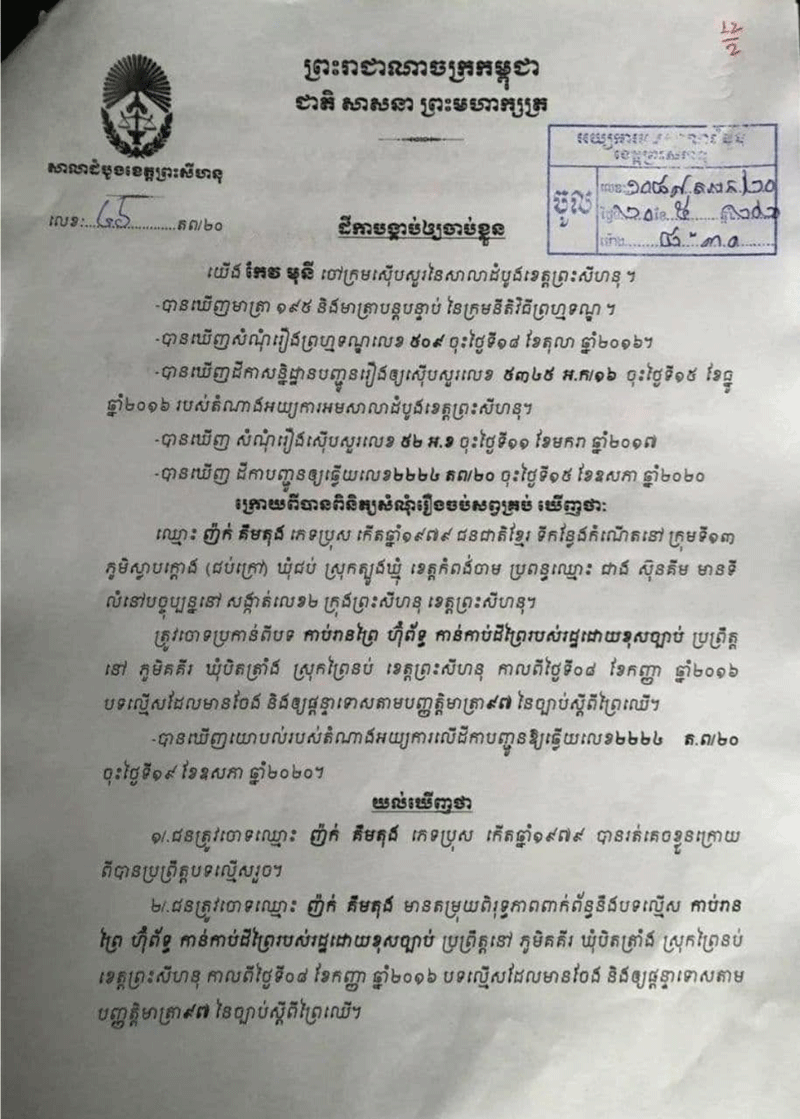 12
2
ព្រះរាជាណាចក្រកម្ពុជា
ជាតិ សាសនា ព្រះមហាក្សត្រ
សាលាដំបូងខេត្តព្រះសីហនុ
ចូល
លេខ:...៤៥............តព/២០
ដីកាបង្គាប់ឲ្យចាប់ខ្លួន
យើង កែវ មុនី ចៅក្រមស៊ើបសួរនៃសាលាដំបូងខេត្តព្រះសីហនុ ។
-បានឃើញមាត្រា ១៩៥ និងមាត្រាបន្តបន្ទាប់ នៃក្រមនីតិវិធីព្រហ្មទណ្ឌ ។
-បានឃើញសំណុំរឿងព្រហ្មទណ្ឌលេខ ៥០៩ ចុះថ្ងៃទី១៨ ខែតុលា ឆ្នាំ២០១៦។
-បានឃើញដីកាសន្និដ្ឋានបញ្ជូនរឿងឲ្យស៊ើបសួរលេខ ៥៣៤៥ អ.ក/១៦ ចុះថ្ងៃទី១៥ ខែធ្នូ
ឆ្នាំ២០១៦ របស់តំណាងអយ្យការអមសាលាដំបូងខេត្តព្រះសីហនុ។
-បានឃើញ សំណុំរឿងស៊ើបសួរលេខ ៥២ អ.ខ ចុះថ្ងៃទី១១ ខែមករា ឆ្នាំ២០១៧
-បានឃើញ ដីកាបញ្ជូនឲ្យឆ្លើយលេខ២២២៤ តព/២០ ចុះថ្ងៃទី១៥ ខែឧសភា ឆ្នាំ២០២០
ក្រោយពីបានពិនិត្យសំណុំរឿងចប់សព្វគ្រប់ ឃើញថា:
ឈ្មោះ ញ៉ក់ គឹមតុង ភេទប្រុស កើតឆ្នាំ១៩៧៩ ជនជាតិខ្មែរ ទីកន្លែងកំណើតនៅ ក្រុមទី១៣
ភូមិស្លាបក្ដោង (ជប់ក្រៅ) ឃុំជប់ ស្រុកត្បូងឃ្មុំ ខេត្តកំពង់ចាម ប្រពន្ធឈ្មោះ ជាង ស៊ុនគីម មានទី
លំនៅបច្ចុប្បន្ននៅ សង្កាត់លេខ២ ក្រុងព្រះសីហនុ ខេត្តព្រះសីហនុ។
ត្រូវចោទប្រកាន់ពីបទ កាប់រានព្រៃ ហ៊ុំព័ទ្ធ កាន់កាប់ដីព្រៃរបស់រដ្ឋដោយខុសច្បាប់ ប្រព្រឹត្ត
នៅ ភូមិគគីរ ឃុំបិតត្រាំង ស្រុកព្រៃនប់ ខេត្តព្រះសីហនុ កាលពីថ្ងៃទី០៨ ខែកញ្ញា ឆ្នាំ២០១៦
បទល្មើសដែលមានចែង និងឲ្យផ្ដន្ទាទោសតាមបញ្ញត្តិមាត្រា៩៧ នៃច្បាប់ស្ដីពីព្រៃឈើ។
-បានឃើញយោបល់របស់តំណាងអយ្យការលើដីកាបញ្ជូនឱ្យឆ្លើយលេខ២២២៤ ត.ព/២០
ចុះថ្ងៃទី១៩ ខែឧសភា ឆ្នាំ២០២០។
យល់ឃើញថា
១/.ជនត្រូវចោទឈ្មោះ ញ៉ក់ គឹមតុង ភេទប្រុស កើតឆ្នាំ១៩៧៩ បានរត់គេចខ្លួនក្រោយ
ពីបានប្រព្រឹត្តបទល្មើសរួច។
២/.ជនត្រូវចោទឈ្មោះ ញ៉ក់ គឹមតុង មានតម្រុយពិរុទ្ធភាពពាក់ព័ន្ធនឹងបទល្មើស កាប់រាន
ព្រៃ ហ៊ុំព័ទ្ធ កាន់កាប់ដីព្រៃរបស់រដ្ឋដោយខុសច្បាប់ ប្រព្រឹត្តនៅ ភូមិគគីរ ឃុំបិតត្រាំង ស្រុកព្រៃនប់
ខេត្តព្រះសីហនុ កាលពីថ្ងៃទី០៨ ខែកញ្ញា ឆ្នាំ២០១៦ បទល្មើសដែលមានចែង និងឲ្យផ្ដន្ទាទោសតាម
បញ្ញត្តិមាត្រា៩៧ នៃច្បាប់ស្ដីពីព្រៃឈើ។